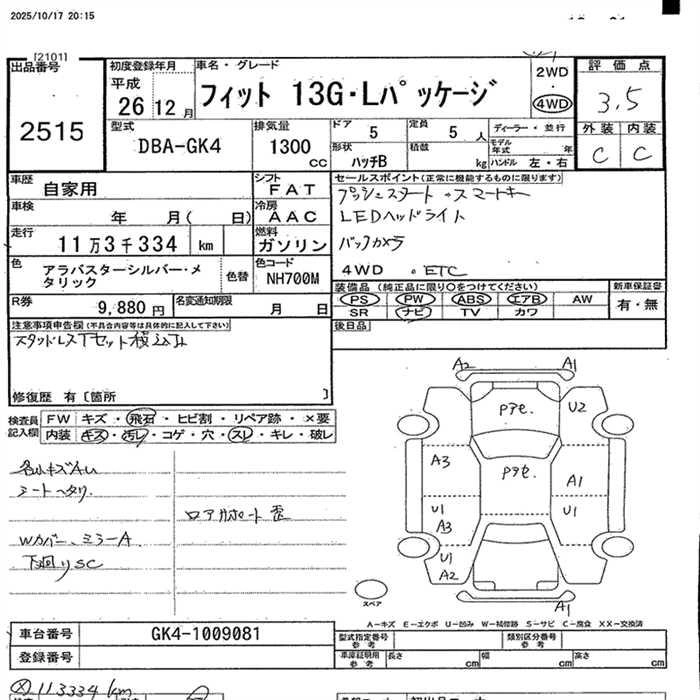 2025/10/17 20:15
[2101]
出品番号
2515
初度登録年月
平成
26 12 月
車名・グレード
フィット 13G・Lパッケージ
2WD
・
4WD
評価点
3.5
外装 内装
C C
型式
DBA-GK4
排気量
1300 cc
ドア 5
定員 5 人
ディーラー・並行
モデル年式 年
形状 ハッチB
積載 kg
ハンドル 左・右
車歴 自家用
シフト FAT
車検 年 月( 日)
冷房 AAC
走行 11万3千334 km
燃料 ガソリン
色 アラバスターシルバー・メタリック
色替
色コード NH700M
R券 9,880 円
名変通知期限 月 日
セールスポイント(正常に機能するものに限ります)
プッシュスタート ・スマートキー
LEDヘッドライト
バックカメラ
4WD 。ETC
装備品 (純正品に限り○をつけてください)
新車保証書
PS PW ABS エアB AW
SR ナビ TV カワ
有・無
後日品
注意事項申告欄(不具合内容等は具体的に記入して下さい)
スタッドレス1セット積込み
修復歴 有〔箇所 〕
検査員記入欄
FW キズ・飛石・ヒビ割・リペア跡・×要
内装 キズ・汚レ・コゲ・穴・スレ・キレ・破レ
シートヘタリ
Wカバー、ミラーA
下廻りSC
A2 A1
Pアセ. U2
A3 Pアセ. A1
U1 U1
A3
U1
A2
A1
スペア
A－キズ E－エクボ U－凹み W－補修跡 S－サビ C－腐食 XX－交換済
車台番号 GK4-1009081
登録番号
型式指定番号 参考
類別区分番号 参考
車庫証明用 参考
長さ cm
幅 cm
高さ cm
113334km